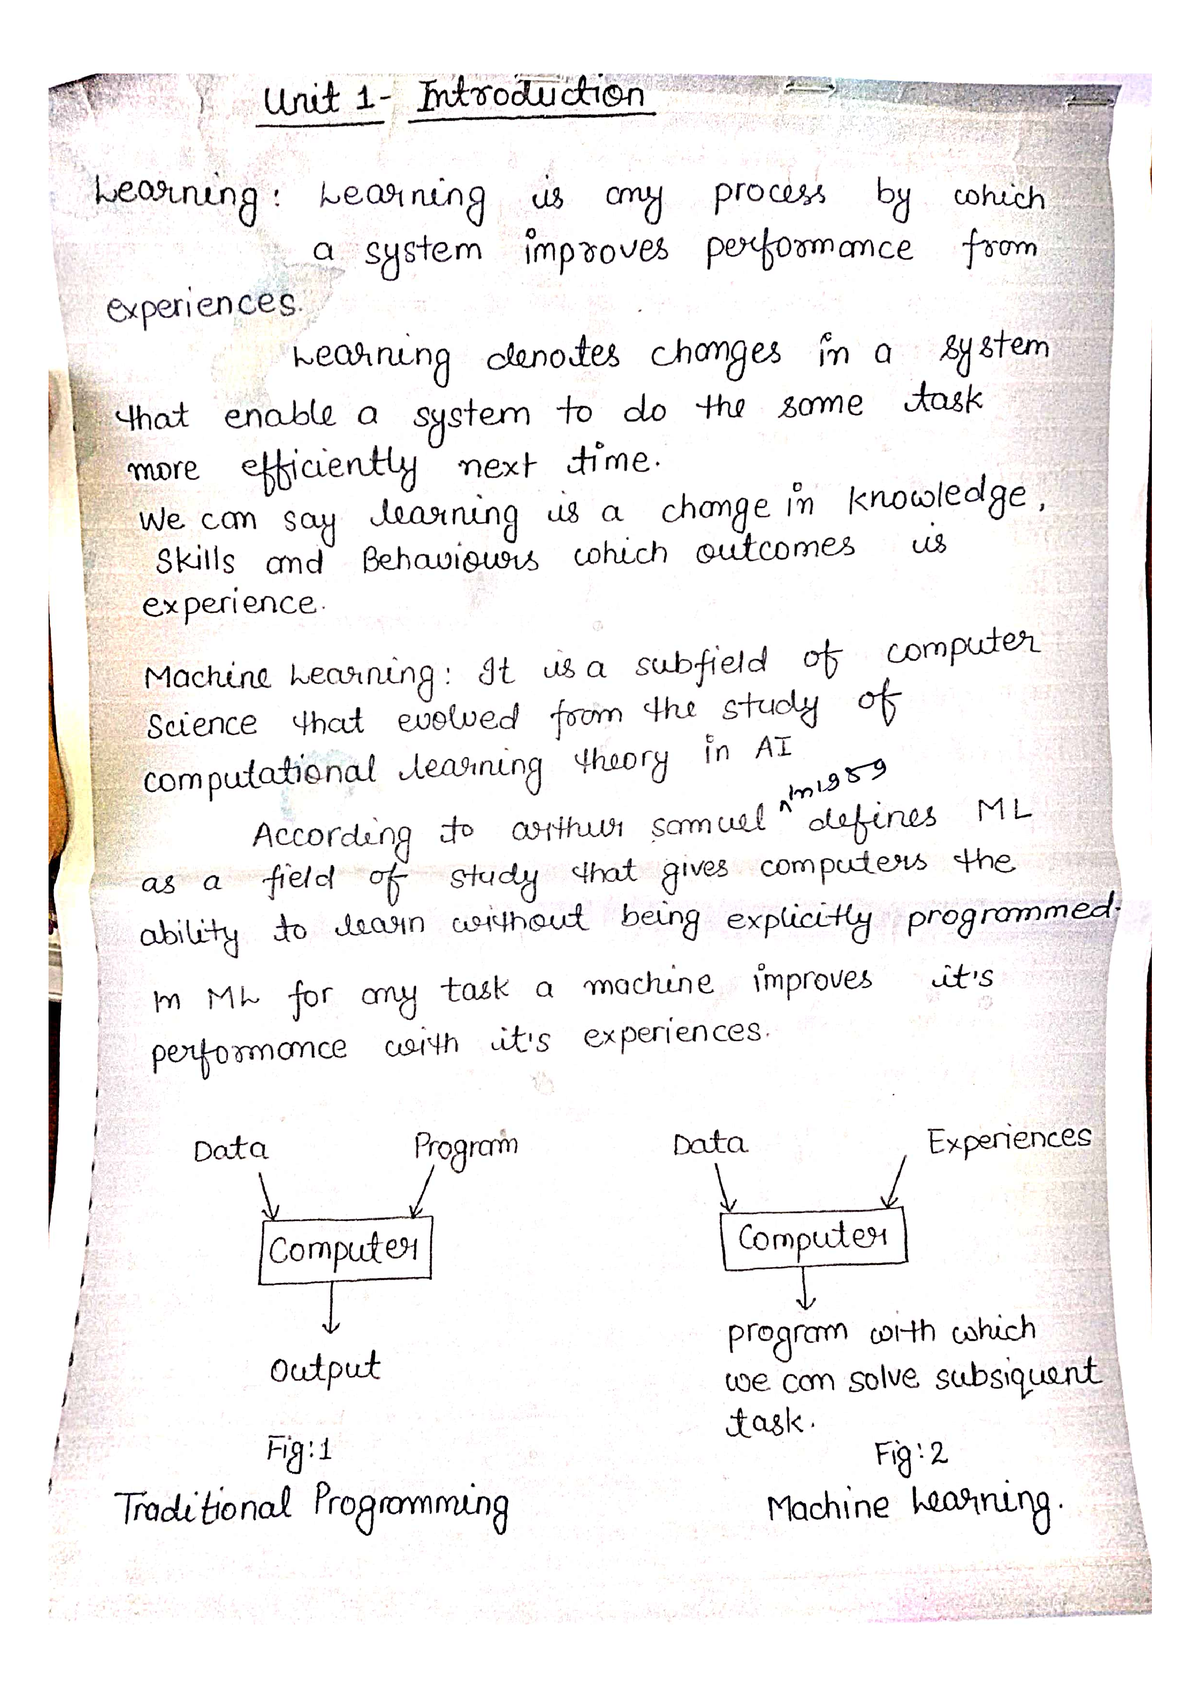 Unit 1- Introduction
Learning: Learning is any process by which
a system improves performance from
experiences.
Learning denotes changes in a system
that enable a system to do the same task
more efficiently next time.
We can say learning is a change in knowledge,
Skills and Behaviours which outcomes is
experience.
Machine Learning: It is a subfield of computer
Science that evolved from the study of
computational learning theory in AI
According to arthur samuel ^ In 1959 defines ML
as a field of study that gives computers the
ability to learn without being explicitly programmed.
In ML for any task a machine improves it's
performance with it's experiences.
Data Program Data Experiences
Computer Computer
Output
program with which
we can solve subsiquent
task.
Fig:1 Fig:2
Traditional Programming Machine Learning.